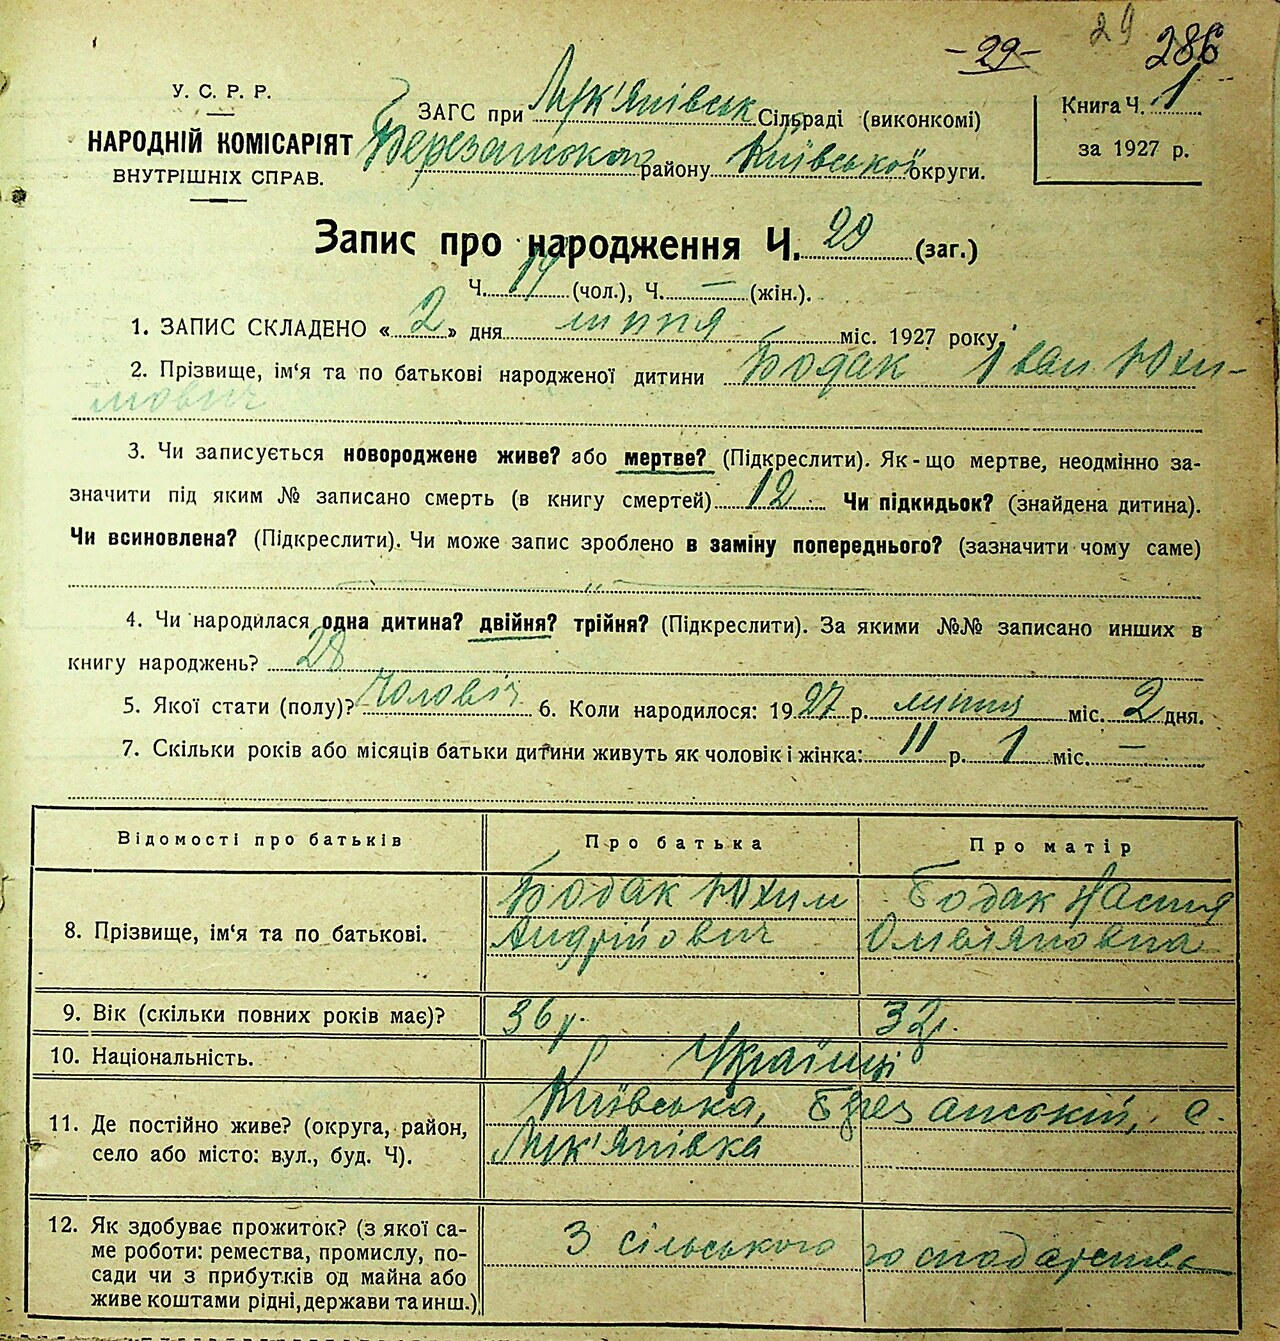 -29- 29 286
У. С. Р. Р.
НАРОДНІЙ КОМІСАРІЯТ
ВНУТРІШНІХ СПРАВ.
ЗАГС при Лук'янівськ Сільраді (виконкомі)
Березанського району Київської округи.
Книга Ч. 1
за 1927 р.
Запис про народження Ч. 29 (заг.)
Ч. 14 (чол.), Ч. — (жін.).
1. ЗАПИС СКЛАДЕНО «2» дня липня міс. 1927 року.
2. Прізвище, ім'я та по батькові народженої дитини Бодак Іван Юхи-
мович
3. Чи записується новороджене живе? або мертве? (Підкреслити). Як-що мертве, неодмінно за-
значити під яким № записано смерть (в книгу смертей) 12 Чи підкидьок? (знайдена дитина).
Чи всиновлена? (Підкреслити). Чи може запис зроблено в заміну попереднього? (зазначити чому саме)
4. Чи народилася одна дитина? двійня? трійня? (Підкреслити). За якими №№ записано инших в
книгу народжень? 28
5. Якої стати (полу)? чоловіч 6. Коли народилося: 1927 р. липня міс. 2 дня.
7. Скільки років або місяців батьки дитини живуть як чоловік і жінка: 11 р. 1 міс. —
Відомості про батьків Про батька Про матір
8. Прізвище, ім'я та по батькові. Бодак Юхим Бодак Настя
Андрійович Омеляновна
9. Вік (скільки повних років має)? 36 р. 32 р.
10. Національність. Українці
11. Де постійно живе? (округа, район, Київська, Березанський, с.
село або місто: вул., буд. Ч). Лук'янівка
12. Як здобуває прожиток? (з якої са- З сільського господарства
ме роботи: ремества, промислу, по-
сади чи з прибутків од майна або
живе коштами рідні, держави та инш.)